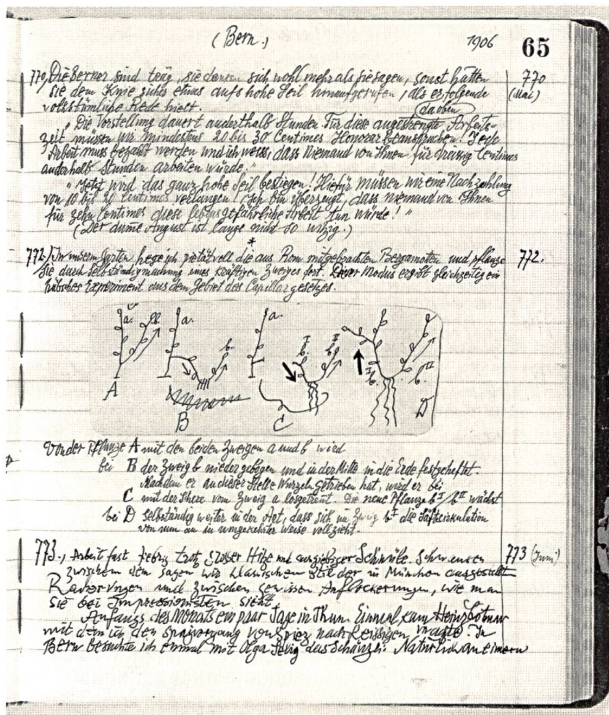 (Bern.) 1906 65
770, Die Berner sind träg, sie denken sich wohl mehr als sie sagen, sonst hätten 770
sie dem Knie sichs etwas aufs hohe Seil hinaufgerufen, als er folgende (Mai)
volkstümliche Rede hielt. da oben
"Die Vorstellung dauert anderthalb Stunden. Für diese angestrengte Arbeits-
zeit müssen wir mindestens 20 bis 30 Centimes Honorar beanspruchen. Jede
Arbeit muss bezahlt werden und ich weiss, dass niemand von Ihnen für dreissig Centimes
anderhalb Stunden arbeiten würde."
"Jetzt wird das ganz hohe Seil bestiegen! Hiefür müssen wir eine Nachzahlung
von 10 bis 20 Centimes verlangen! Ich bin überzeugt, dass niemand von Ihnen
für zehn Centimes diese lebensgefährliche Arbeit tun würde!"
(Der dume August ist lange nicht so witzig.)
772, In unserm Garten hege ich pietätvoll die aus Rom mitgebrachten Bergamotten und pflanze 772.
sie durch Selbständigmachung eines kräftigen Zweiges fort. Dieser Modus ergibt gleichzeitig ein
hübsches Experiment aus dem Gebiet des Capillargesetzes.
a. b. a. b. a. b I b II b I b II
A B C D
Von der Pflanze A mit den beiden Zweigen a und b wird
bei B der Zweig b niedergebogen und in der Mitte in die Erde festgeheftet.
Nachdem er an dieser Stelle Wurzeln getrieben hat, wird er bei
C mit der Shere vom Zweig a losgetrennt. Die neue Pflanze b I / b II wächst
bei D selbständig weiter in der Art, dass sich in Zweig b I die Saftcirkulation
von nun an in umgekehrter Weise vollzieht.
773., Arbeit fast Febris trotz grosser Hitze und ausgiebiger Schwüle. Schwanken 773 (Juni)
zwischen dem sagen wir klassischen Stil der in München ausgestellten
Radierungen und zwischen gewissen Auflockerungen, wie man
sie bei Impressionisten sieht.
Anfangs des Monats ein paar Tage in Thun. Einmal kam Heinz Lotmar
mit dem ich den Spaziergang von Spiez nach Leissigen wagte. In
Bern besuchte ich einmal mit Olga Levig das Schänzli. Natürlich an einem